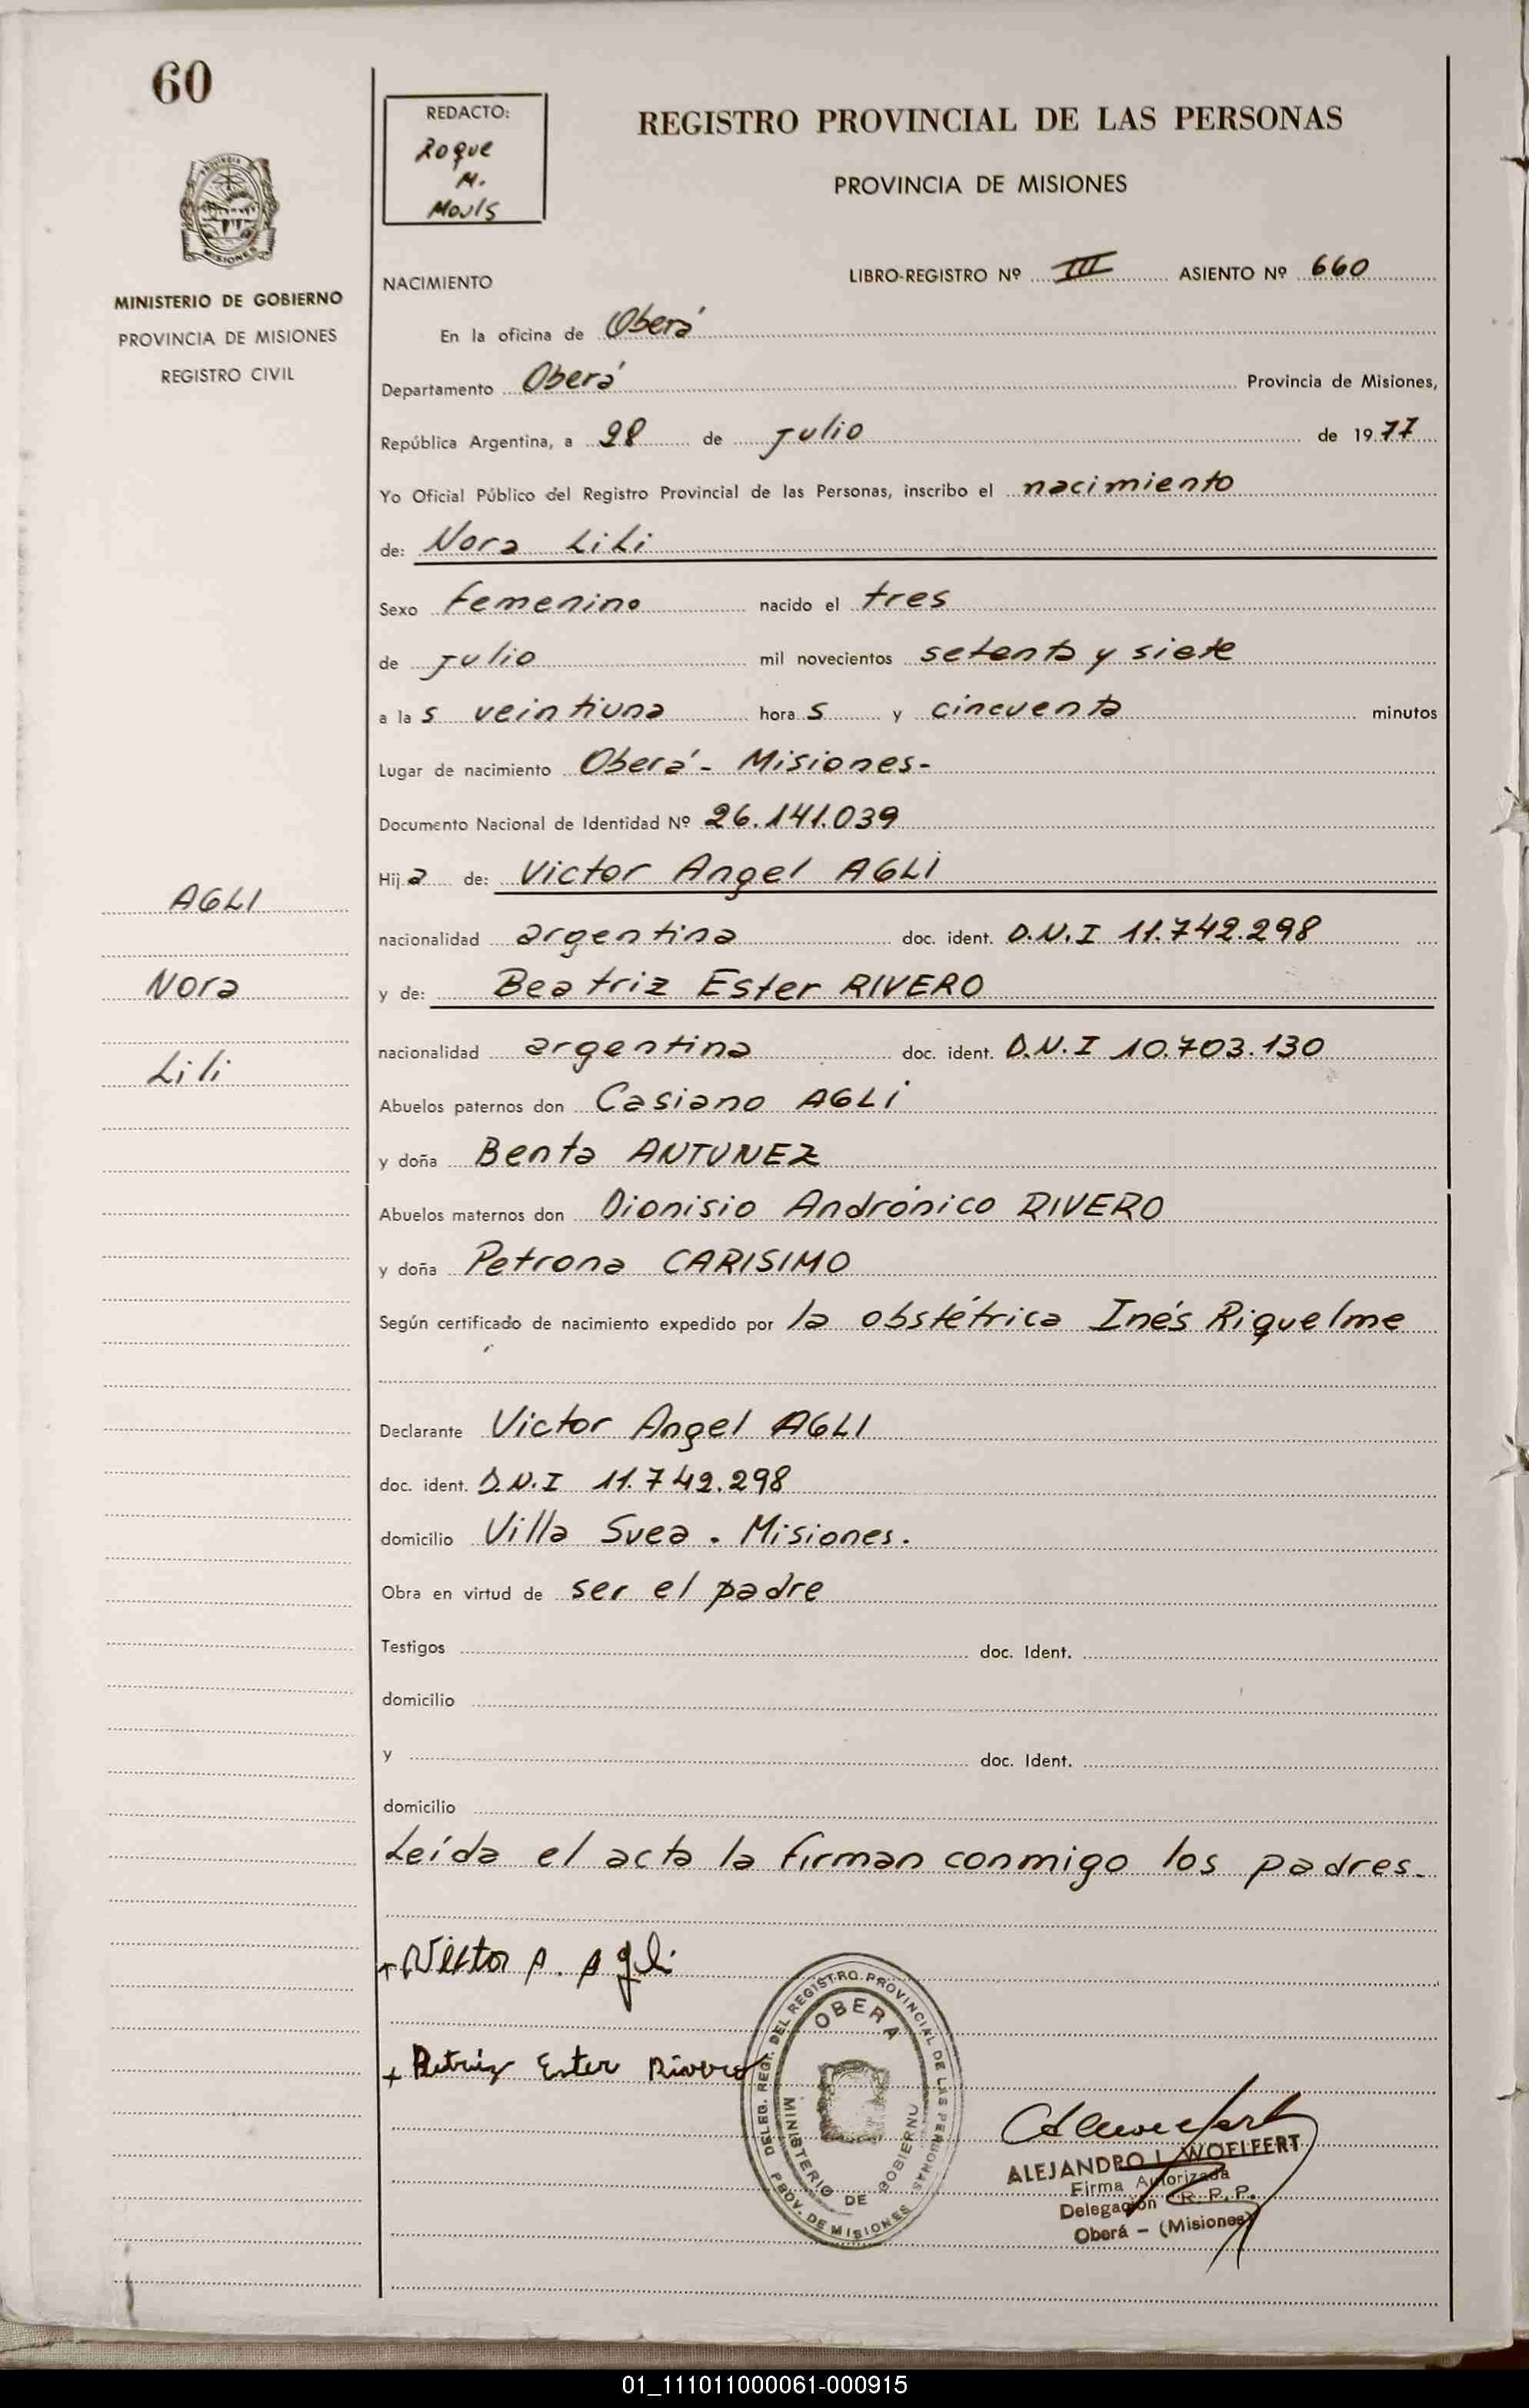 60
REDACTO:
Roque
M.
REGISTRO PROVINCIAL DE LAS PERSONAS
PROVINCIA DE MISIONES
MISIONES
MINISTERIO DE GOBIERNO
PROVINCIA DE MISIONES
REGISTRO CIVIL
NACIMIENTO
LIBRO-REGISTRO Nº III ASIENTO Nº 660
En la oficina de Oberá
Departamento Oberá Provincia de Misiones,
República Argentina, a 28 de Julio de 1977
Yo Oficial Público del Registro Provincial de las Personas, inscribo el nacimiento
de: Nora Lili
Sexo femenino nacido el tres
de Julio mil novecientos setenta y siete
a las veintiuna horas y cincuenta minutos
Lugar de nacimiento Oberá - Misiones-
Documento Nacional de Identidad Nº 26.141.039
Hija de: Victor Angel AGLI
AGLI
nacionalidad argentina doc. ident. D.N.I 11.742.298
Nora
y de: Beatriz Ester RIVERO
nacionalidad argentina doc. ident. D.N.I 10.703.130
Lili
Abuelos paternos don Casiano AGLI
y doña Benta ANTUNEZ
Abuelos maternos don Dionisio Andrónico RIVERO
y doña Petrona CARISIMO
Según certificado de nacimiento expedido por la obstétrica Inés Riquelme
Declarante Victor Angel AGLI
doc. ident. D.N.I 11.742.298
domicilio Villa Svea . Misiones.
Obra en virtud de ser el padre
Testigos doc. Ident.
domicilio
y doc. Ident.
domicilio
Leída el acta la firman conmigo los padres.
Victor A. Agli
Ester Rivero
DELEG. REGI. DEL REGISTRO PROVINCIAL DE LAS PERSONAS
OBERA
MINISTERIO DE GOBIERNO
PROV. DE MISIONES
ALEJANDRO L. WOELFERT
Firma Autorizada
Delegación R. P. P.
Oberá - (Misiones)
01_111011000061-000915